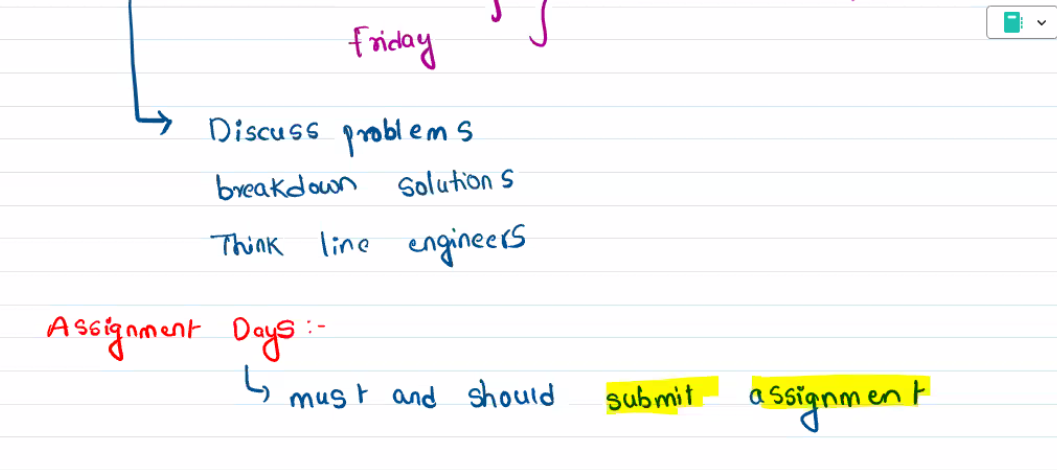 Friday
Discuss problems
breakdown solutions
Think line engineers
Assignment Days :-
must and should submit assignment